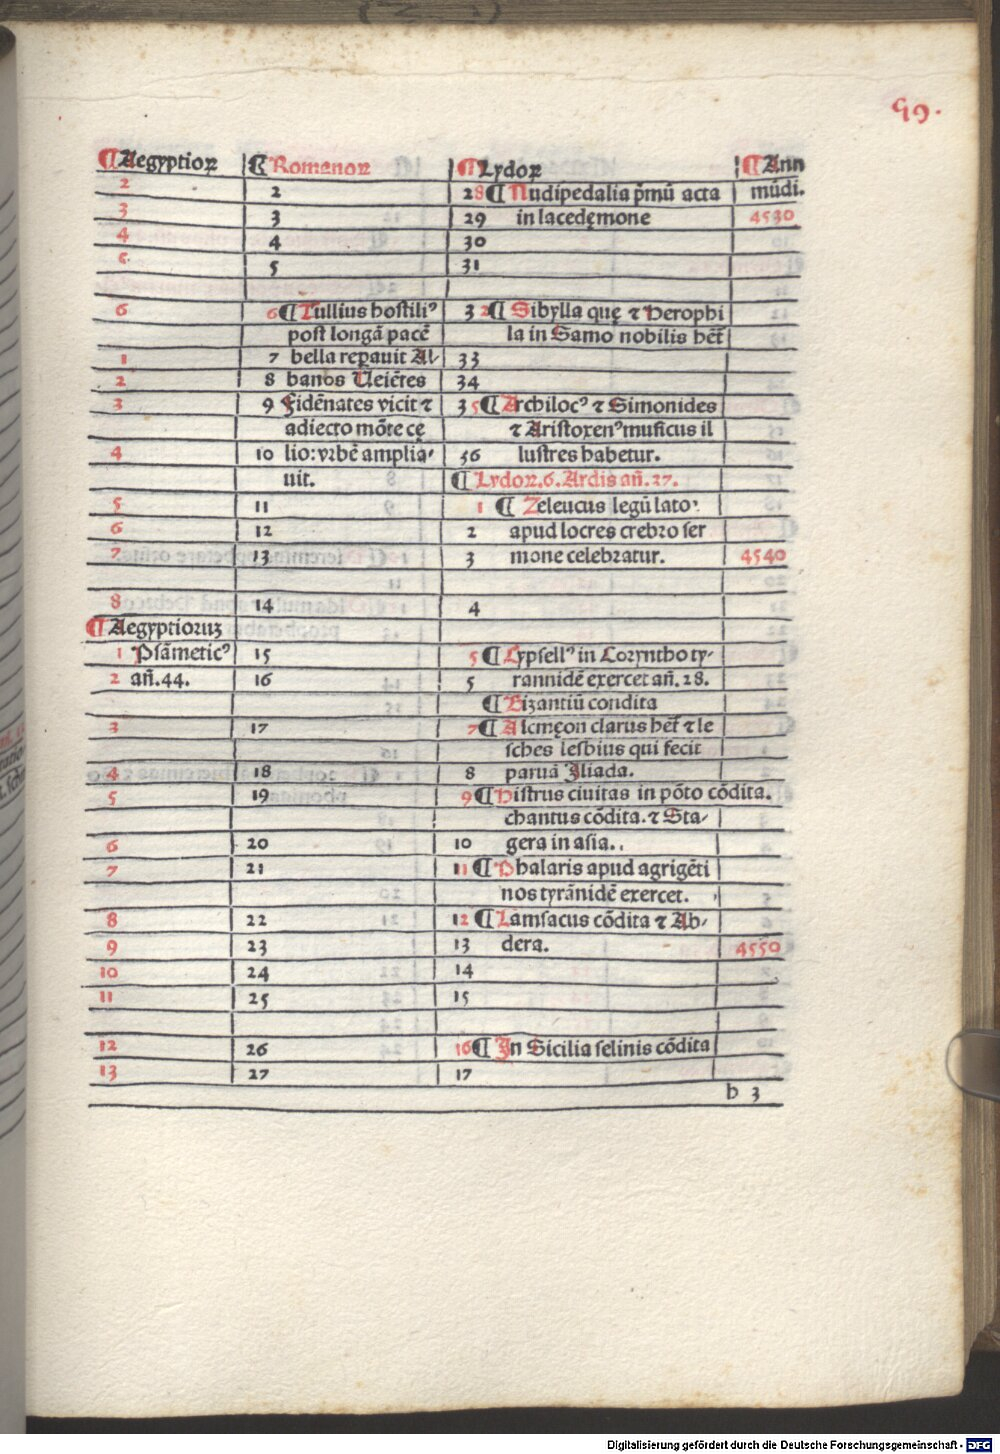 99.
¶Aegyptioꝝ ¶Romanoꝝ ¶Lydoꝝ ¶Ann
2 2 28 ¶Nudipedalia p̄mū acta mūdi.
3 3 29 in lacedęmone 4530
4 4 30
5 5 31
6 6¶Tullius hostiliꝰ 32¶Sibylla quę ⁊ Herophi
post longā pacē la in Samo nobilis het̄
1 7 bella reꝑauit Al⸗ 33
2 8 banos Ueiētes 34
3 9 Fidēnates vicit ⁊ 35¶Archilocꝰ ⁊ Simonides
adiecto mōte cę ⁊ Aristoxenꝰ musicus il
4 10 lio: vrbē amplia⸗ 36 lustres habetur.
uit. ¶Lydoꝝ.6. Ardis añ.27.
5 11 1 ¶ Zeleucus legū lato⸗
6 12 2 apud locres crebro ser
7 13 3 mone celebratur. 4540
8 14 4
¶Aegyptioruꝫ
1 Psāmeticꝰ 15 5 ¶Cypsellꝰ in Coryntho ty⸗
2 añ.44. 16 5 rannidē exercet añ.28.
¶Bizantiū condita
3 17 7¶Alcmęon clarus het̄ ⁊ le
sches lesbius qui fecit
4 18 8 paruā Iliada.
5 19 9¶Histrus ciuitas in pōto cōdita.
chantus cōdita. ⁊ Sta⸗
6 20 10 gera in asia.
7 21 11 ¶Phalaris apud agrigēti
nos tyrānidē exercet.
8 22 12 ¶Lamsacus cōdita ⁊ Ab⸗
9 23 13 dera. 4550
10 24 14
11 25 15
12 26 16¶In Sicilia selinis cōdita
13 27 17
b 3
Digitalisierung gefördert durch die Deutsche Forschungsgemeinschaft - DFG